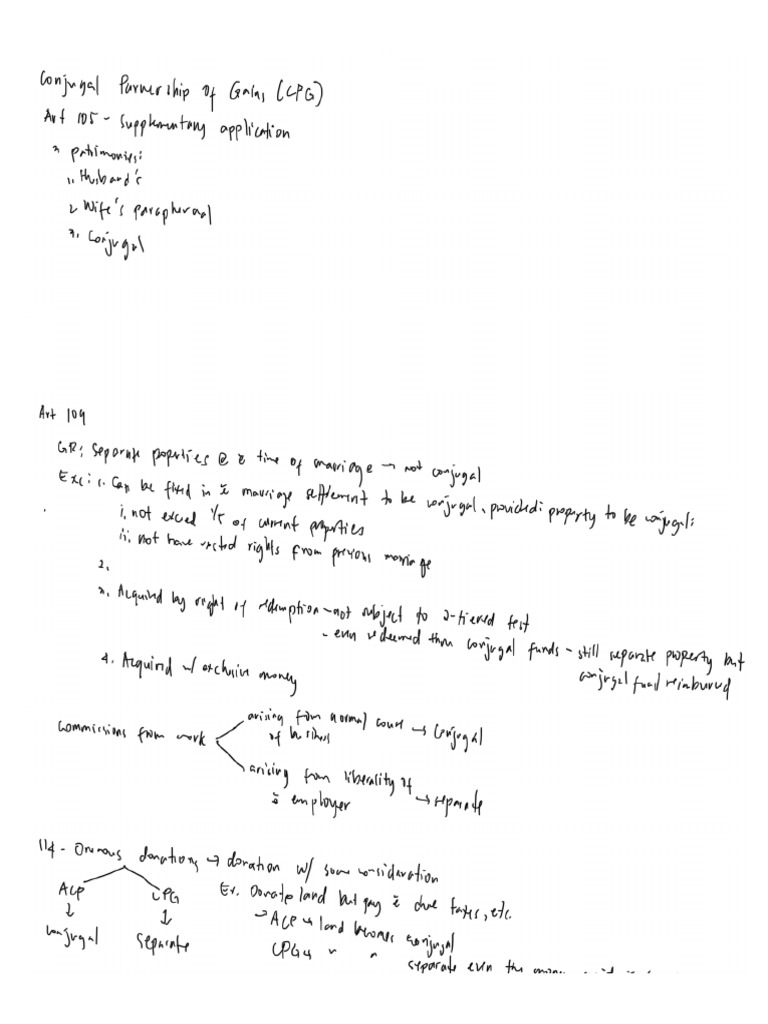 Conjugal Parnership of Gains (CPG)
Art 105 - Supplementary application
3 patrimonies:
1. Husband's
2 Wife's paraphernal
3. Conjugal
Art 109
GR: Separate properties @ time of marriage → not conjugal
Exc: 1. Can be fixed in marriage settlement to be conjugal, provided: property to be conjugal:
i. not exceed 1/5 of current properties
ii. not have vested rights from previous marriage
2.
3. Acquired by right of redemption - not subject to 2-tiered test
- even redeemed thru conjugal funds - still separate property but
conjugal fund reimbursed
4. Acquired w/ exclusive money
arising from normal course → conjugal
of business
Commissions from work
arising from liberality of → separate
employer
114 - Onerous donations → donation w/ some consideration
ACP CPG Ex. Donate land but pay due taxes, etc.
↓ ↓ → ACP → land becomes conjugal
conjugal separate CPG → " "
separate even tho